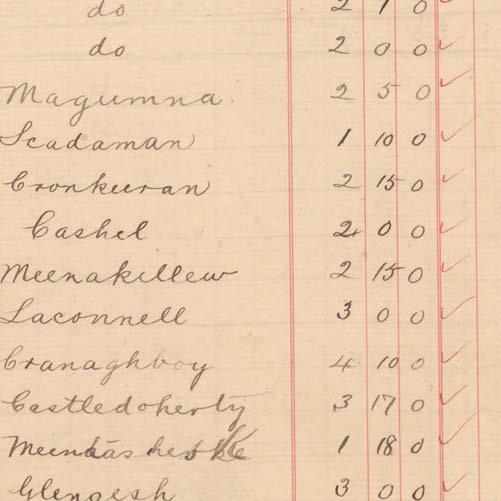 do 2 1 0
do 2 0 0
Magumna. 2 5 0
Scadaman 1 10 0
Cronkeeran 2 15 0
Cashel 2 0 0
Meenakillew 2 15 0
Laconnell 3 0 0
Cranaghboy 4 10 0
Castledoherty 3 17 0
1 18 0
Glengesh 3 0 0